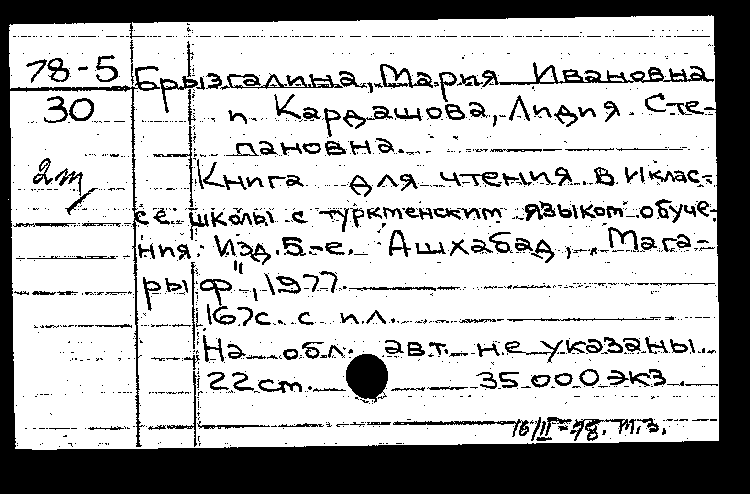 78-5
30
2 т
Брызгалина, Мария Ивановна
и Кардашова, Лидия Сте-
пановна.
Книга для чтения в и клас-
се школы с туркменским языком обуче-
ния. Изд. 5-е. Ашхабад, „Мага-
рыф", 1977.
167с. с ил.
На обл. авт. не указаны.
22 ст. 35 000 экз.
16/II-78. Т.З.